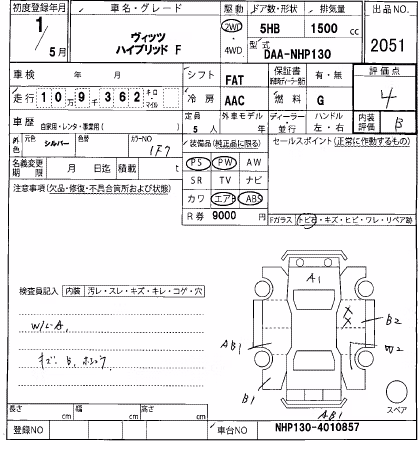 初度登録年月
車名・グレード
駆動
ドア数・形状
排気量
出品NO.
1/5月
ヴィッツ
ハイブリッド F
2WD
4WD
5HB
1500 cc
型式
DAA-NHP130
2051
車検 年 月
シフト
FAT
保証書
有・無
評価点
4
走行 109千362 キロ・マイル
冷房
AAC
燃料
G
車歴
自家用・レンタ・事業用( )
定員
5 人
外車モデル
年
ディーラー・並行
ハンドル
左・右
内装評価
B
外色
元色
シルバー
色替
カラーNO
1F7
装備品(純正品に限る)
セールスポイント(正常に作動するもの)
名義変更期限
月 日迄
積載
t
PS PW AW
SR TV ナビ
カワ エアB ABS
R券 9000 円
注意事項(欠品・修復・不具合箇所および状態)
Fガラス トビ石・キズ・ヒビ・ワレ・リペア跡
検査員記入
内装
汚レ・スレ・キズ・キレ・コゲ・穴
W/LA,
キズ B,
A1
X
X
B2
AB1
W2
B1
AB1
スペア
長さ cm
幅 cm
高さ cm
登録NO
車台NO
NHP130-4010857